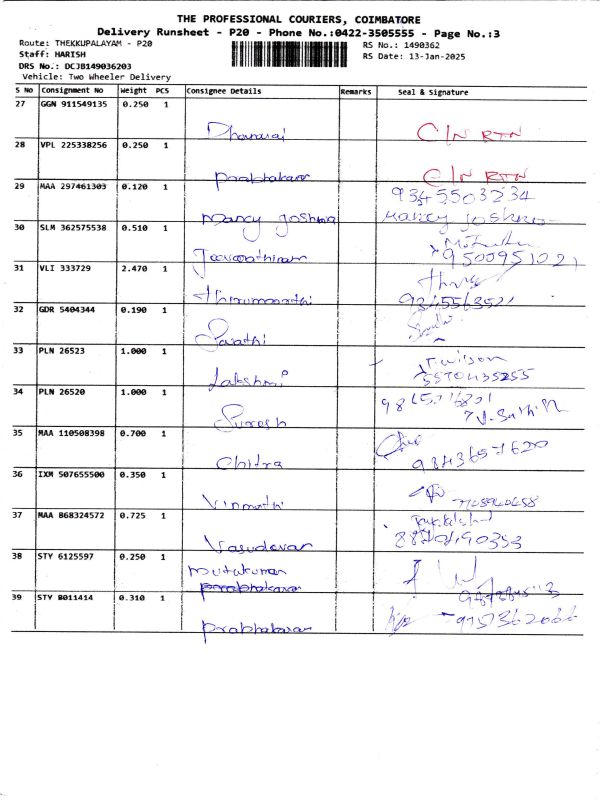 THE PROFESSIONAL COURIERS, COIMBATORE
Delivery Runsheet - P20 - Phone No.:0422-3505555 - Page No.:3
Route: THEKKUPALAYAM - P20
RS No.: 1490362
Staff: HARISH
RS Date: 13-Jan-2025
DRS No.: DCJB149036203
Vehicle: Two Wheeler Delivery
S No Consignment No Weight PCS Consignee Details Remarks Seal & Signature
27 GGN 911549135 0.250 1
Dhanaraj C/N RTN
28 VPL 225338256 0.250 1
Prabhakaran C/N RTN
29 MAA 297461303 0.120 1 9345503234
Mancy Joshma Mancy Joshma
30 SLM 362575538 0.510 1
9500951021
31 VLI 333729 2.470 1
Thirumoorthi
32 GDR 5404344 0.190 1
Sarathi
33 PLN 26523 1.000 1
Lakshmi
34 PLN 26520 1.000 1
Suresh
35 MAA 110508398 0.700 1
Chitra
36 IXM 507655500 0.350 1
Vinmathi
37 MAA 868324572 0.725 1
Vasudevan
38 STY 6125597 0.250 1
Mutukumar
prabhakaran
39 STY 8011414 0.310 1
Prabhakaran